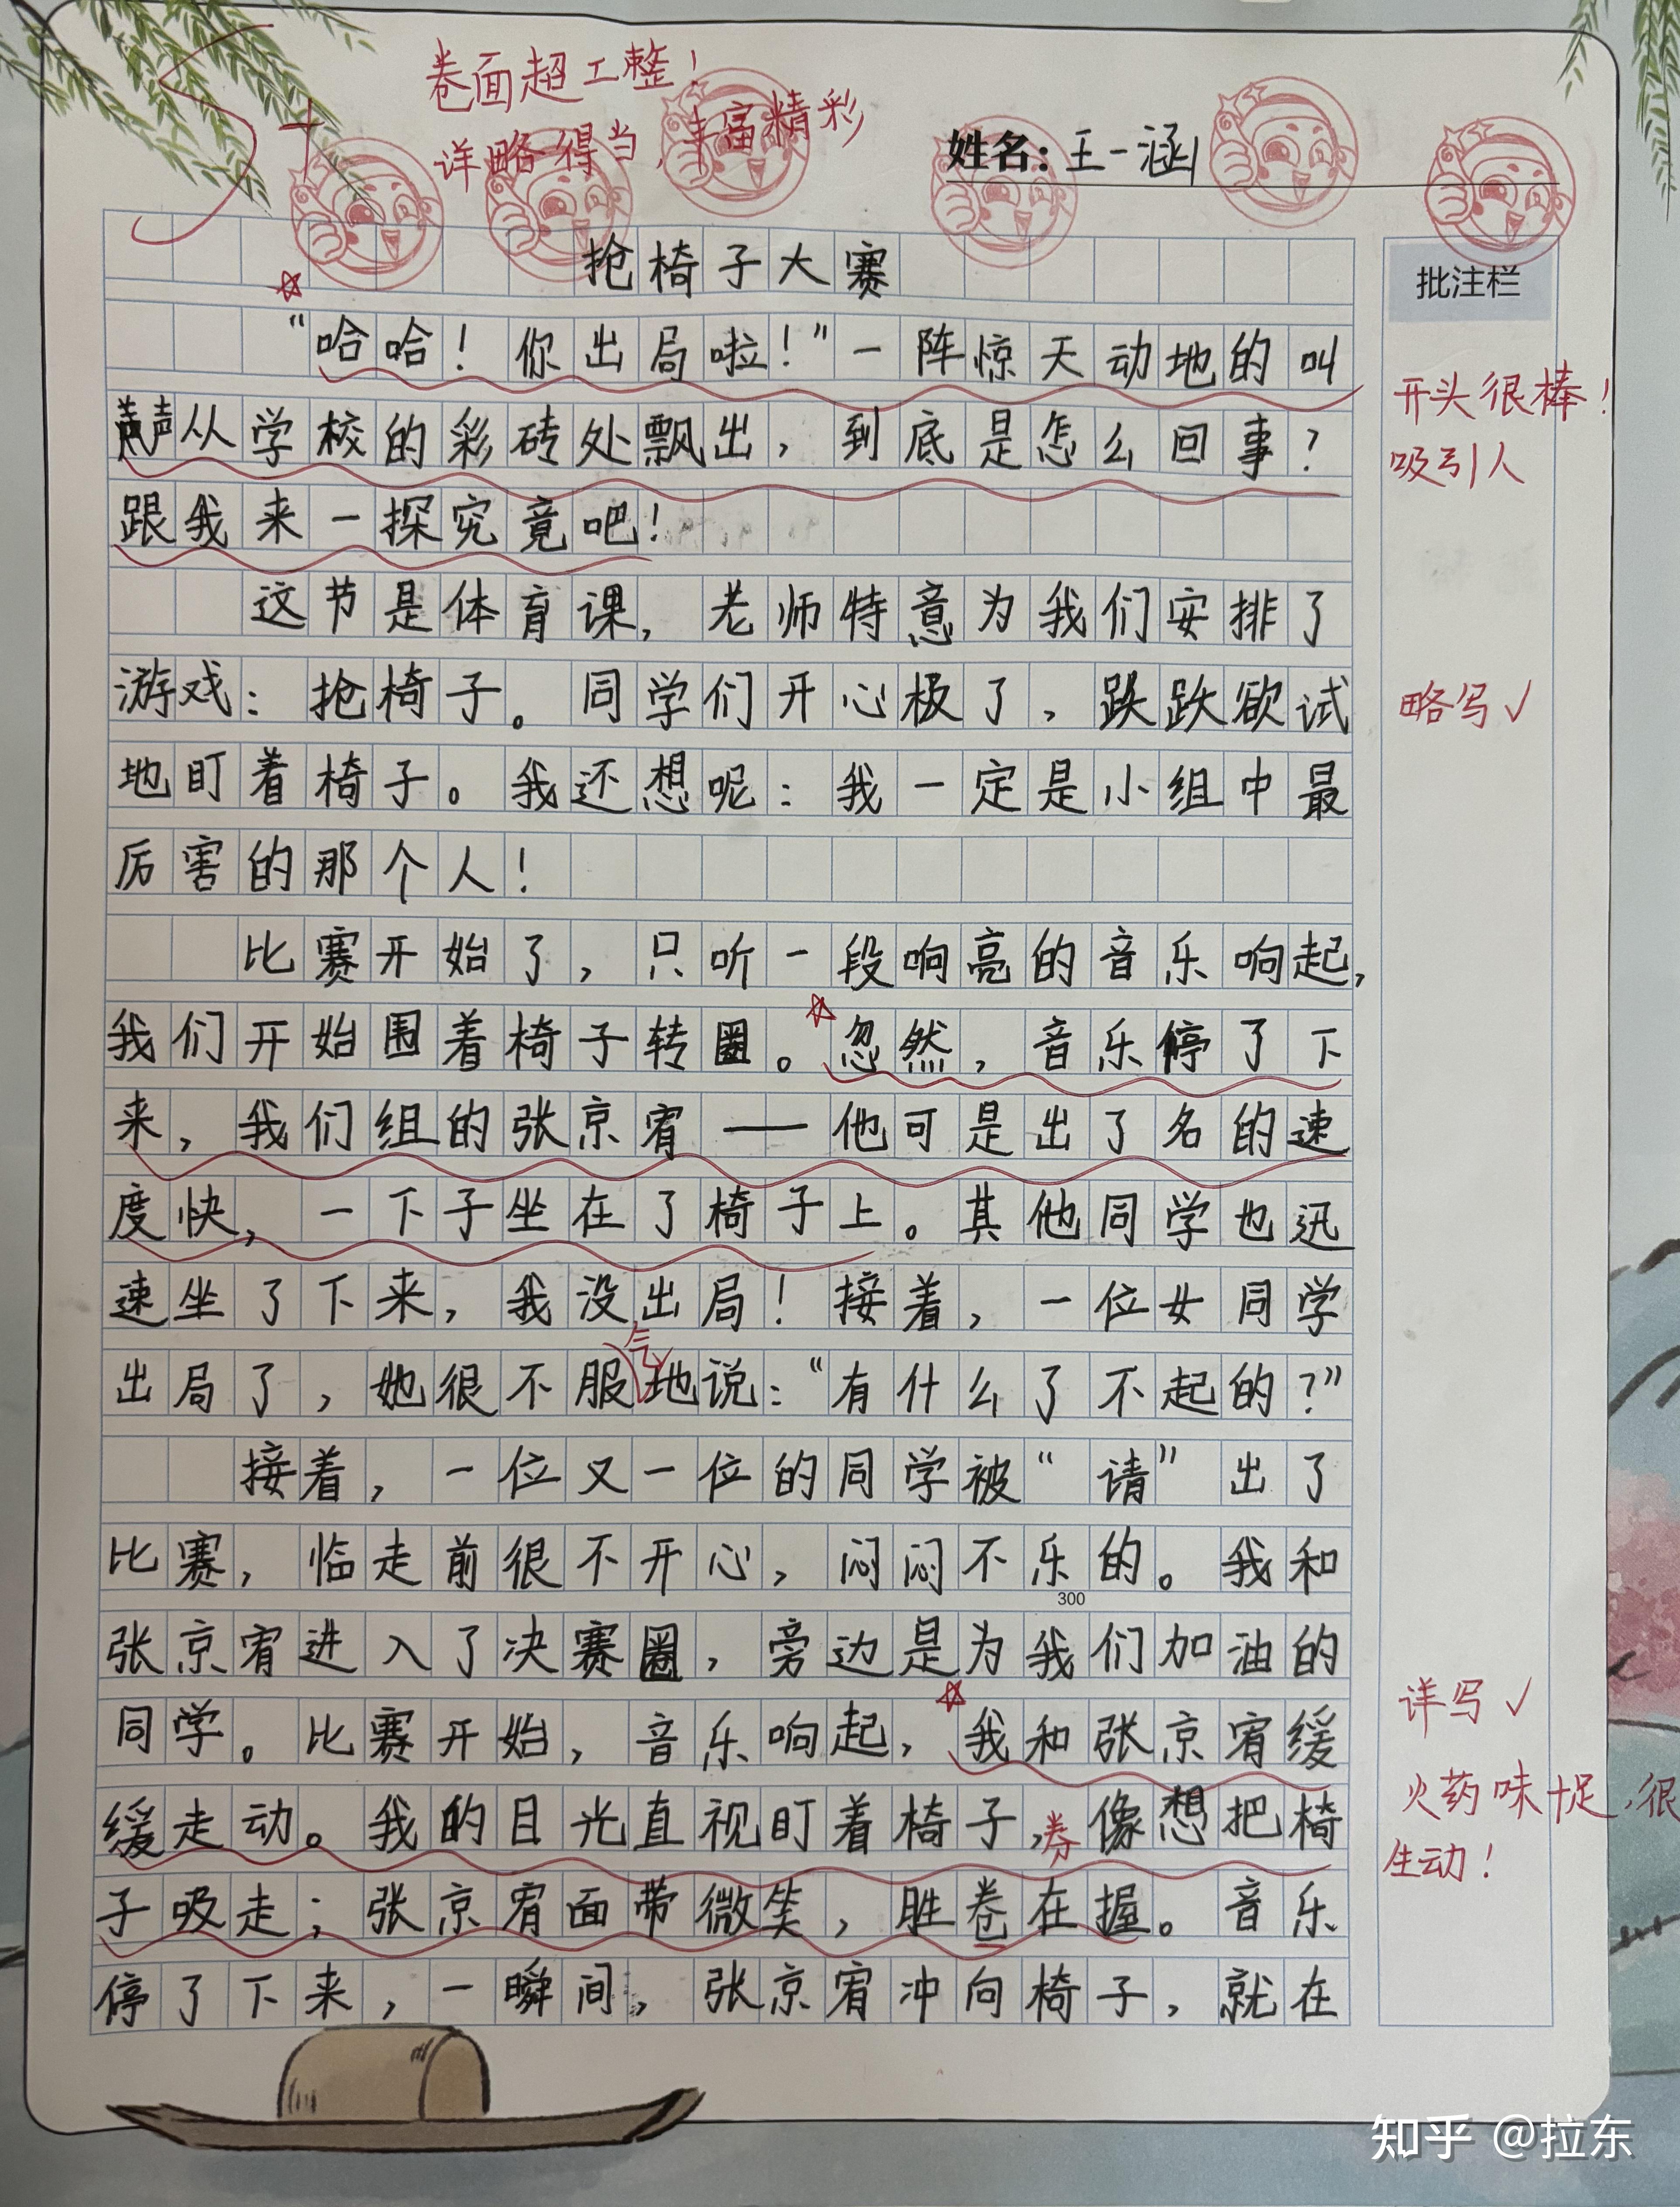 5+
卷面超工整！
详略得当，丰富精彩
姓名：王一涵
抢椅子大赛
批注栏
“哈哈！你出局啦！”一阵惊天动地的叫
开头很棒！
声从学校的彩砖处飘出，到底是怎么回事？
吸引人
跟我来一探究竟吧！
这节是体育课，老师特意为我们安排了
游戏：抢椅子。同学们开心极了，跃跃欲试
略写√
地盯着椅子。我还想呢：我一定是小组中最
厉害的那个人！
比赛开始了，只听一段响亮的音乐响起，
我们开始围着椅子转圈。忽然，音乐停了下
来，我们组的张京宥——他可是出了名的速
度快，一下子坐在了椅子上。其他同学也迅
速坐了下来，我没出局！接着，一位女同学
气
出局了，她很不服地说：“有什么了不起的？”
接着，一位又一位的同学被“请”出了
比赛，临走前很不开心，闷闷不乐的。我和
300
张京宥进入了决赛圈，旁边是为我们加油的
详写√
同学。比赛开始，音乐响起，我和张京宥缓
火药味十足，很
缓走动。我的目光直视盯着椅子，像想把椅
生动！
券
子吸走；张京宥面带微笑，胜卷在握。音乐
停了下来，一瞬间，张京宥冲向椅子，就在
知乎 @拉东